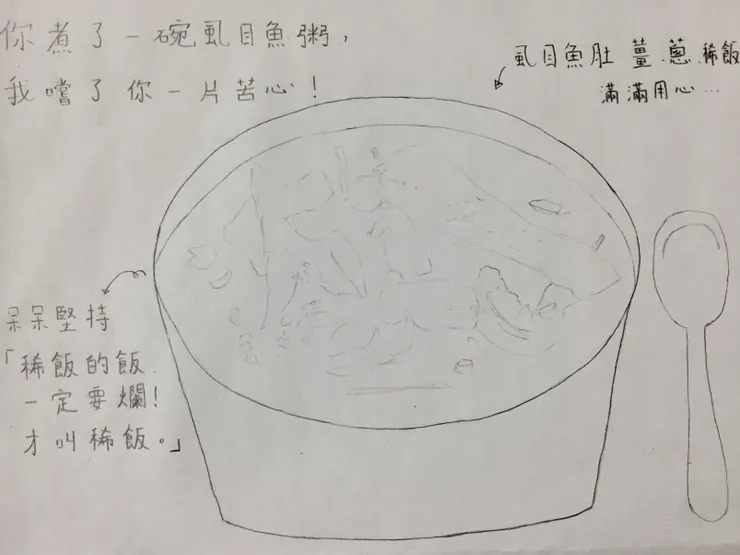 你煮了一碗虱目魚粥,
我嚐了你一片苦心!
虱目魚肚 薑.蔥.稀飯
滿滿用心...
呆呆堅持
「稀飯的飯.
一定要爛!
才叫稀飯。」